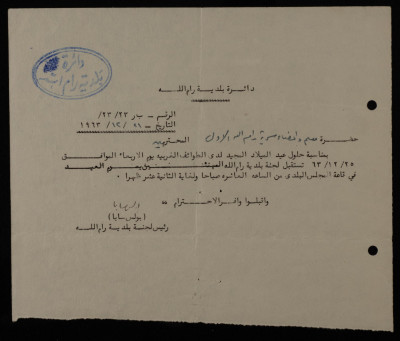 دائرة
بلدية رام الله
دائرة بلدية رام الله
الرقم – سار ٢٣/٢٣/
التاريخ – ٢١/١٢/١٩٦٣
حضرة مدير واعضاء سرية رام الله الاولى المحترمين
بمناسبة حلول عيد الميلاد المجيد لدى الطوائف الغربيه يوم الاربعاء الموافق
٦٣/١٢/٢٥ تستقبل لجنة بلدية رام الله المهنئين بهذا العيد
في قاعة المجلس البلدي من الساعه العاشره صباحا ولغاية الثانية عشر ظهرا ٠
واقبلوا وافر الاحترام ،،
(بولس سابا)
رئيس لجنة بلدية رام الله